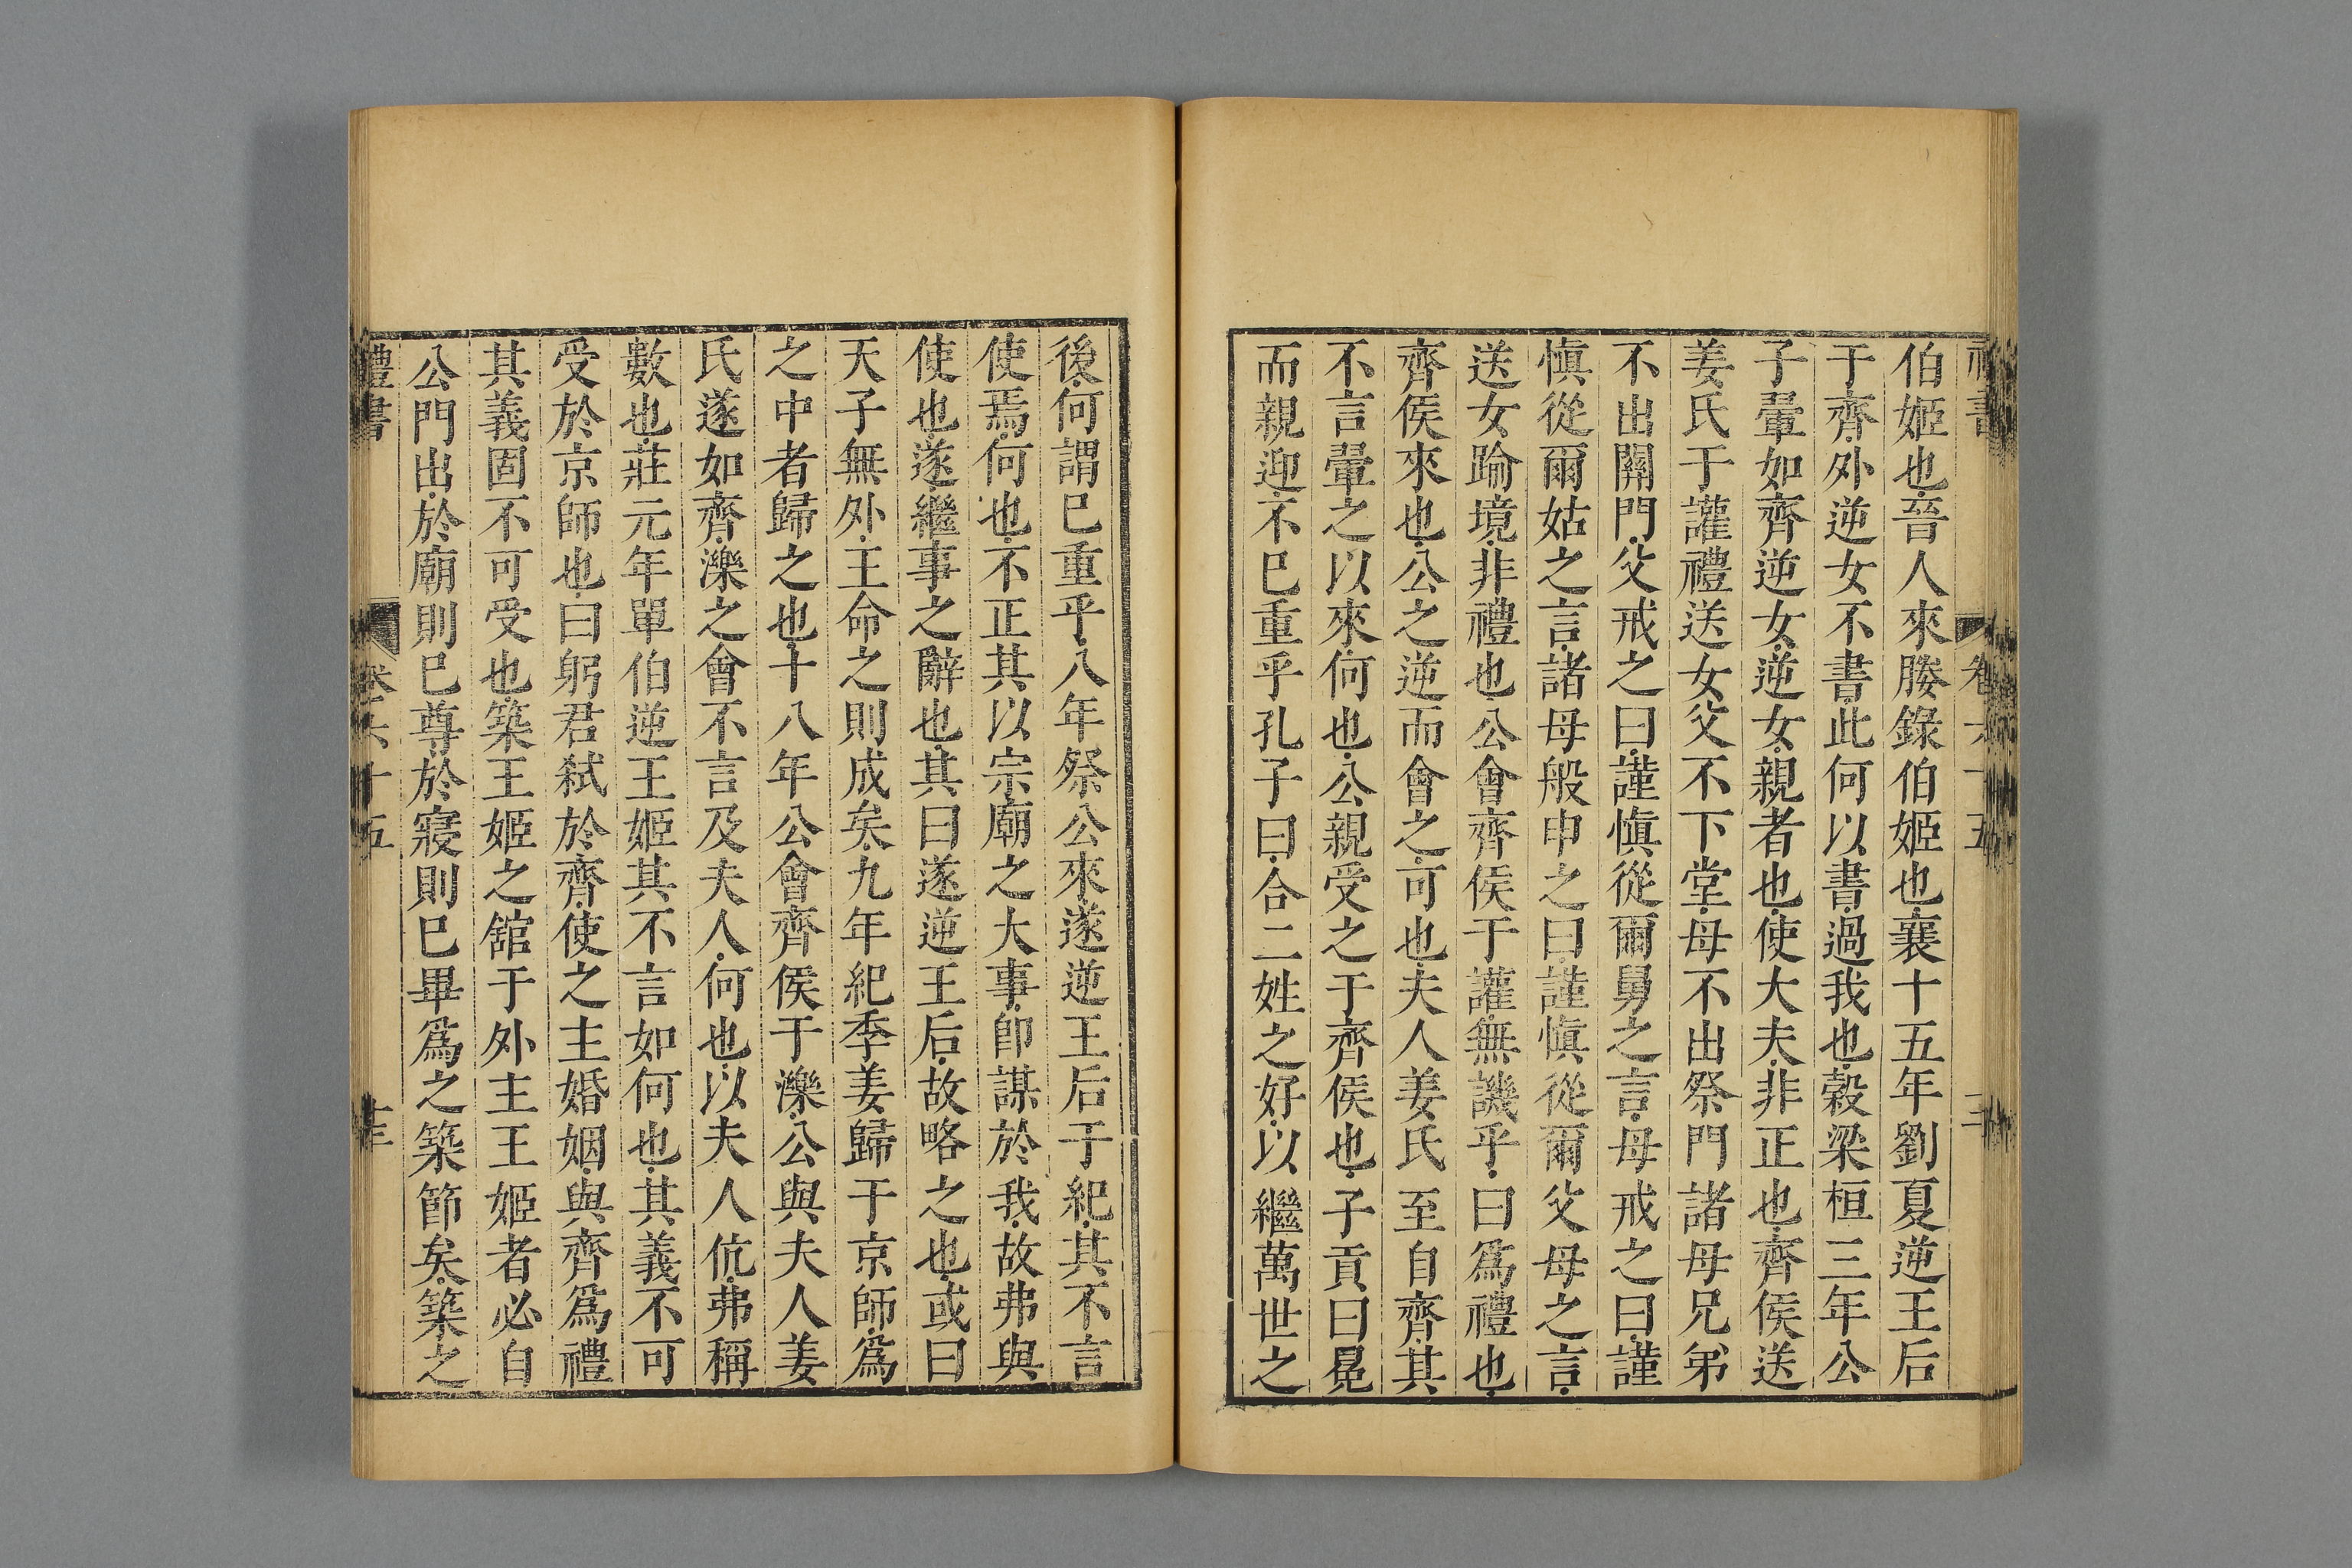 伯姬也晉人來媵錄伯姬也襄十五年劉夏逆王后
于齊外逆女不書此何以書過我也穀梁桓三年公
子翬如齊逆女逆女親者也使大夫非正也齊侯送
姜氏于讙禮送女父不下堂母不出祭門諸母兄弟
不出闕門父戒之曰謹慎從爾舅之言母戒之曰謹
慎從爾姑之言諸母般申之曰謹慎從爾父母之言
送女踰境非禮也公會齊侯于讙無譏乎曰為禮也
齊侯來也公之逆而會之可也夫人姜氏至自齊其
不言翬之以來何也公親受之于齊侯也子貢曰冕
而親迎不巳重乎孔子曰合二姓之好以繼萬世之
後何謂巳重乎八年祭公來遂逆王后于紀其不言
使焉何也不正其以宗廟之大事卽謀於我故弗與
使也遂繼事之辭也其曰遂逆王后故略之也或曰
天子無外王命之則成矣九年紀季姜歸于京師為
之中者歸之也十八年公會齊侯于濼公與夫人姜
氏遂如齊濼之會不言及夫人何也以夫人伉弗稱
數也莊元年單伯逆王姬其不言如何也其義不可
受於京師也曰躬君弒於齊使之主婚姻與齊為禮
其義固不可受也築王姬之舘于外主王姬者必自
公門出於廟則巳尊於寢則巳畢為之築節矣築之
禮書 卷六十五